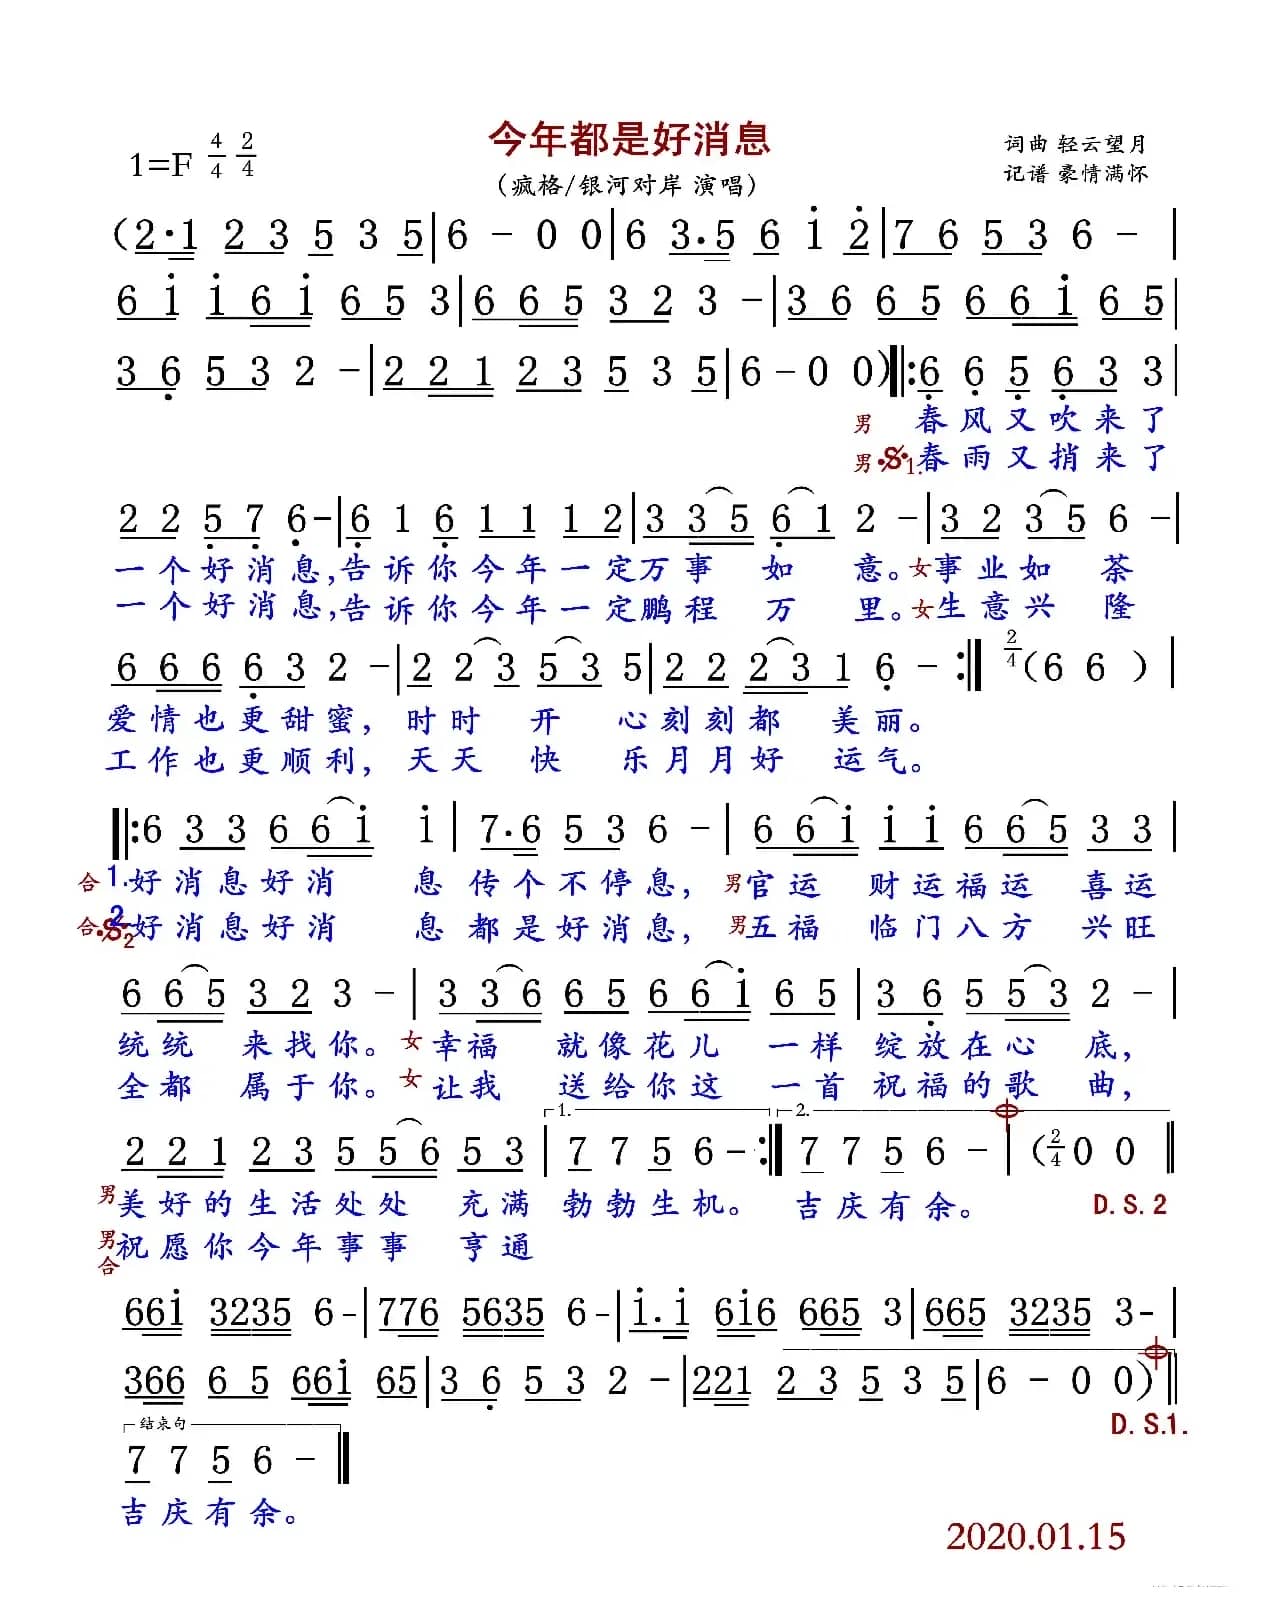 今年都是好消息
1=F 4/4 2/4
(疯格/银河对岸 演唱)
词曲 轻云望月
记谱 豪情满怀
(2·1 2 3 5 3 5|6 - 0 0|6 3.5 6 i 2̇|7 6 5 3 6 -|
6 i i 6 i 6 5 3|6 6 5 3 2 3 -|3 6 6 5 6 6 i 6 5|
3 6 5 3 2 -|2 2 1 2 3 5 3 5|6 - 0 0)|:6 6 5 6 3 3|
男 春风又吹来了
男 𝄋1. 春雨又捎来了
2 2 5 7 6 -|6 1 6 1 1 1 2|3 3 5 6 1 2 -|3 2 3 5 6 -|
一个好消息,告诉你今年一定万事如意。女事业如荼
一个好消息,告诉你今年一定鹏程万里。女生意兴隆
6 6 6 6 3 2 -|2 2 3 5 3 5|2 2 2 3 1 6 - :| 2/4 (6 6)|
爱情也更甜蜜,时时开心刻刻都美丽。
工作也更顺利,天天快乐月月好运气。
|:6 3 3 6 6 i i|7.6 5 3 6 -|6 6 i i i 6 6 5 3 3|
合 1.好消息好消息传个不停息,男官运财运福运喜运
合 𝄋2 2.好消息好消息都是好消息,男五福临门八方兴旺
6 6 5 3 2 3 -|3 3 6 6 5 6 6 i 6 5|3 6 5 5 3 2 -|
统统来找你。女幸福就像花儿一样绽放在心底,
全都属于你。女让我送给你这一首祝福的歌曲,
1. 2.
2 2 1 2 3 5 5 6 5 3|7 7 5 6 - :|7 7 5 6 -|(2/4 0 0‖
男 美好的生活处处充满勃勃生机。吉庆有余。 D.S.2
男合 祝愿你今年事事亨通
66i 3235 6 -|776 5635 6 -|i.i 6i6 665 3|665 3235 3 -|
366 6 5 66i 65|3 6 5 3 2 -|221 2 3 5 3 5|6 - 0 0)‖
D.S.1.
结束句
7 7 5 6 -‖
吉庆有余。
2020.01.15